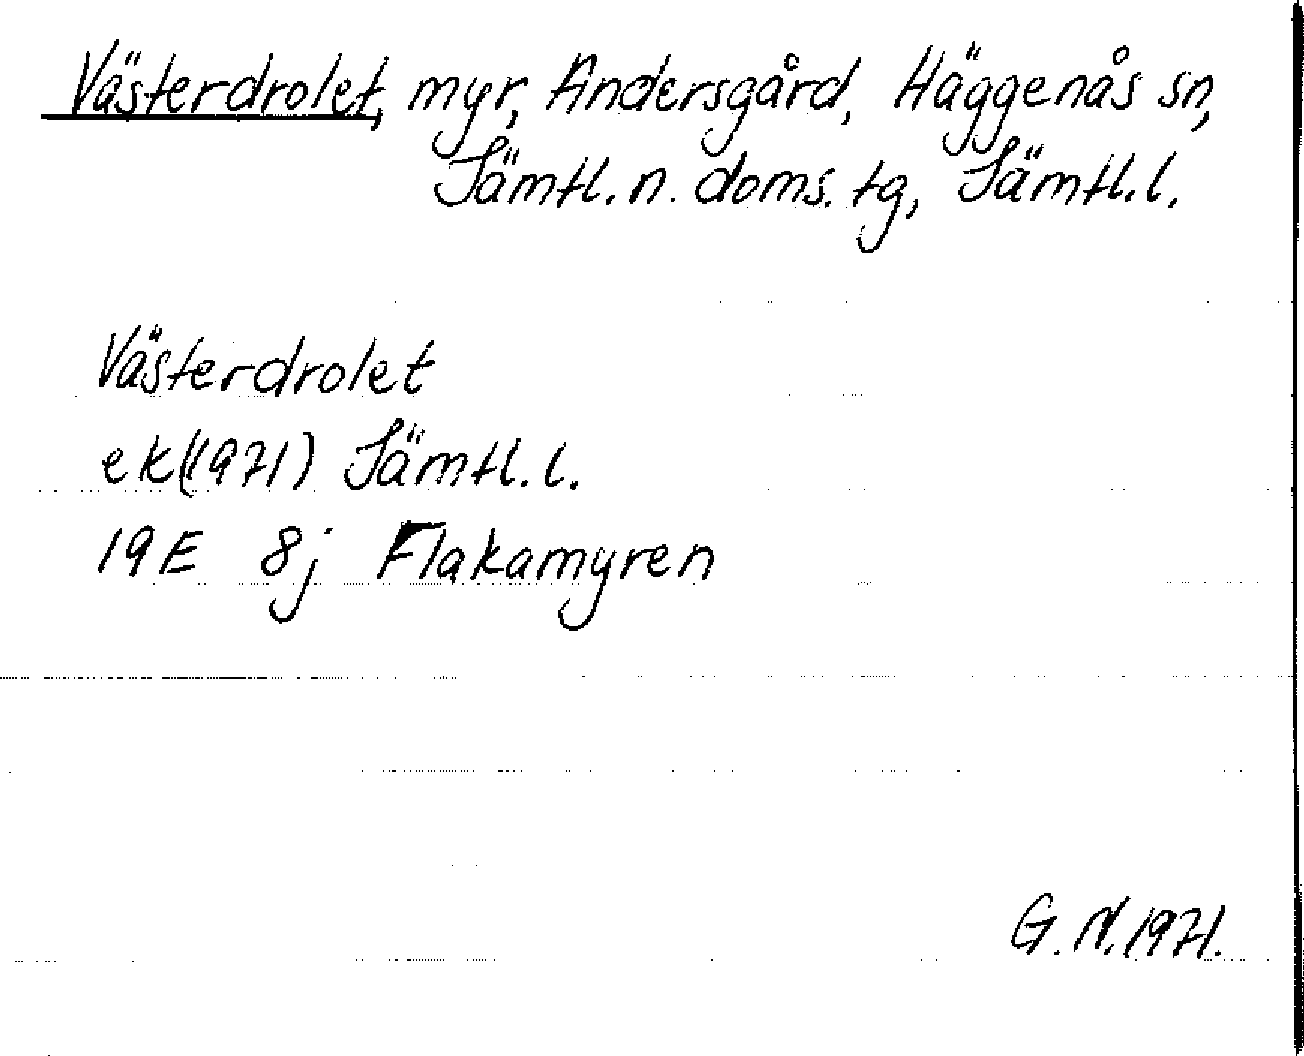 Västerdrolet, myr, Andersgård, Häggenås sn,
Jämtl. n. doms. tg, Jämtl. l.
Västerdrolet
ek (1971) Jämtl. l.
19E 8j Flakamyren
G. N. 1971.